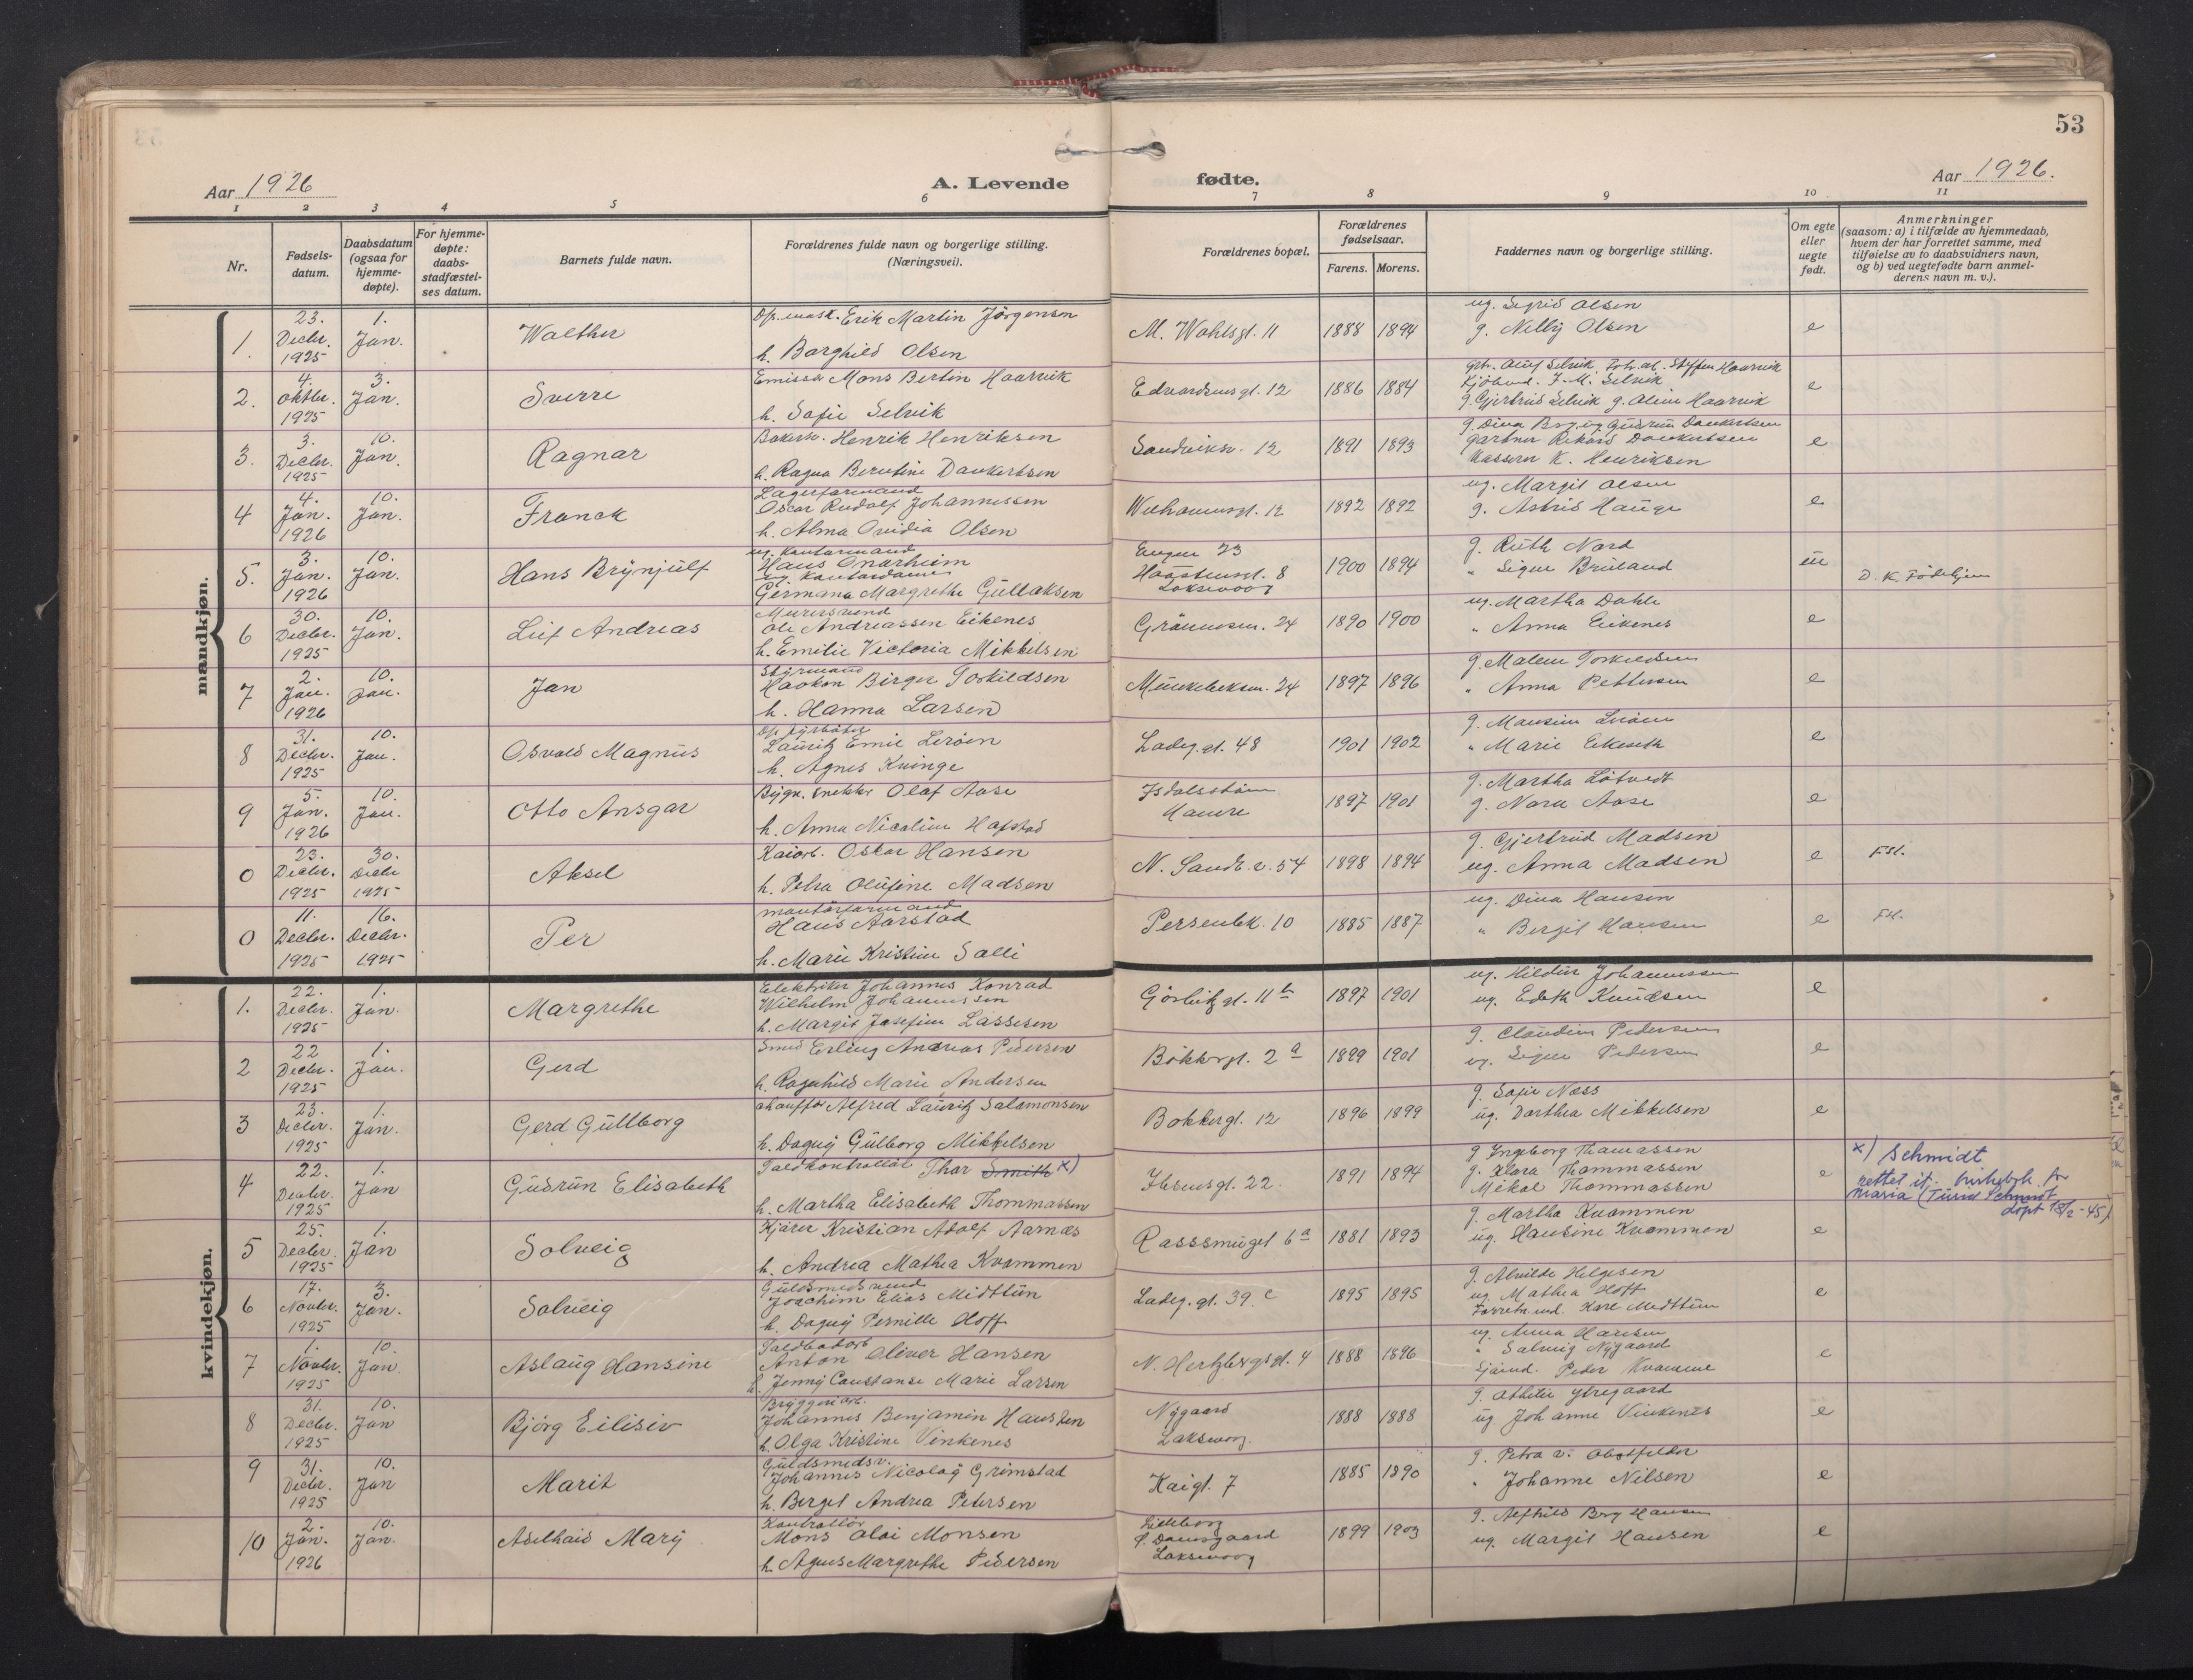 53
Aar 1926
A. Levende
fødte.
Aar 1926.
1 2 3 4 5 6 7 8 9 10 11
Nr.
Fødsels-
datum.
Daabsdatum
(ogsaa for
hjemme-
døpte).
For hjemme-
døpte:
daabs-
stadfæstel-
ses datum.
Barnets fulde navn.
Forældrenes fulde navn og borgerlige stilling.
(Næringsvei).
Forældrenes bopæl.
Forældrenes
fødselsaar.
Farens. Morens.
Faddernes navn og borgerlige stilling.
Om egte
eller
uegte
født.
Anmerkninger
(saasom: a) i tilfælde av hjemmedaab,
hvem der har forrettet samme, med
tilføielse av to daabsvidners navn,
og b) ved uegtefødte barn anmel-
derens navn m. v.).
mandkjøn.
1. 23. Decbr. 1925 1. Jan. Walther
Erik Martin Jörgensen
h. Borghild Olsen
M. Wohlsgt. 11 1888 1894
ug. Sigrid Olsen
g. Nelly Olsen
e
2. 4. oktbr. 1925 3. Jan. Sverre
Emissær Mons Bertin Haarvik
h. Sofie Selvik
Edvardsensgt. 12 1886 1884
Kjöbmd. J. M. Selvik
g. Gjertrud Selvik g. Aline Haarvik
e
3. 3. Decbr. 1925 10. Jan. Ragnar
Henrik Henriksen
h. Ragna Berntine Dankertsen
Sandviksv. 12 1891 1893
gartner Rikard Dankertsen
K. Henriksen
e
4 4. Jan. 1926 10. Jan. Franck
Lagerformand
Oscar Rudolf Johannessen
h. Alma Ovidia Olsen
1892 1892
ug. Margit Olsen
g. Astrid Hauge
e
5. 3. Jan. 1926 10. Jan. Hans Brynjulf
ug. Kontormand
Hans Onarheim
ug. Kontordame
Germana Margrethe Gullaksen
Engen 23
Laksevaag
1900 1894
g. Ruth Nord
" Signe Bruland
D. K. Fødehjem
6 30. Decbr. 1925 10. Jan. Leif Andreas
Murersvend
Ole Andreassen Eikenes
h. Emilie Victoria Mikkelsen
24 1890 1900
ug. Martha Dahle
" Anna Eikenes
e
7 2. Jan. 1926 10. Jan. Jan
Styrmand
Haakon Birger Torkildsen
h. Hanna Larsen
Munkebeksm. 24 1897 1896
g. Malene Torkildsen
" Anna Pettersen
e
8 31. Decbr. 1925 10. Jan. Osvald Magnus
Lauritz Emil Leröen
h. Agnes Kvinge
Ladeg. gt. 48 1901 1902
" Marie
e
9 5. Jan. 1926 10. Jan. Otto Ansgar
Bygn. snekker Olaf Aase
h. Anna Nicoline Hafstad
Mauere
1897 1901
g. Martha Lötvedt
g. Nora Aase
e
0 23. Decbr. 1925 30. Decbr 1925 Aksel
Kaiarb. Oskar Hansen
h. Petra Olufine Madsen
N. Sandv. v. 54 1898 1894
g. Gjertrud Madsen
ug. Anna Madsen
e Fst.
0 11. Decbr. 1925 16. Decbr. 1925 Per
montörformand
Hans Aarstad
h. Marie Kristine Salli
Persenbk. 10 1885 1887
ug. Dina Hansen
" Bergit Hansen
e Fst.
kvindekjøn.
1. 22. Decbr. 1925 1. Jan. Margrethe
Elektriker Johannes Konrad
Wilhelm Johannessen
h. Margit Josefine Lassesen
Görbitz gt. 11 b 1897 1901
ug. Hildur Johannessen
ug. Edith Knudsen
e
2 22 Decbr. 1925 1. Jan. Gerd
Smed Erling Andreas Pedersen
h. Ragnhild Marie Andersen
Bökkergt. 2 a 1899 1901
g. Claudine Pedersen
ug. Signe Pedersen
e
3 23. Decbr. 1925 1. Jan. Gerd Gullborg
chauffør Alfred Lauritz Salamonsen
h. Dagny Gulborg Mikkelsen
Bokkergt. 12 1896 1899
g. Sofie Næss
ug. Dorthea Mikkelsen
e
4 22. Decbr. 1925 1. Jan Gudrun Elisabeth
Toldkontrollör Thor Smith x)
h. Martha Elisabeth Thommassen
Ibsensgt. 22. 1891 1894
g Ingeborg Thomassen
g. Klara Thommassen
Mikal Thommassen
e x) Schmidt
rettet if. kirkebok for
Maria (Turid Schmidt
døpt 18/2 - 45)
5 25. Decbr. 1925 1. Jan Solveig
Kjører Kristian Adolf Aarnæs
h. Andrea Mathea Kvammen
Rasssmuget 6 a 1881 1893
g. Martha Kvammen
ug. Hansine Kvammen
e
6 17. Novbr. 1925 3. Jan. Solveig
Guldsmedsvend
Joachim Elias Midttun
h. Dagny Pernille Hoff
Ladeg. gt. 39 c 1895 1895
g. Alvilde Helgesen
ug. Mathea Hoff
Karl Midttun
e
7 1. Novbr. 1925 10. Jan. Aslaug Hansine
Anton Oliver Hansen
h. Jenny Constanse Marie Larsen
N. Hertzbergsgt. 4 1888 1896
ug. Anna Hansen
" Solveig Nygaard
Sjömd. Peder Kvamme
e
8 31. Decbr. 1925 10. Jan Bjørg Eilisiv
Bryggeriarb.
Johannes Benjamin Hansen
h. Olga Kristine Vinkenes
Nygaard
Laksevaag.
1888 1888
ug. Johanne Vinkenes
e
9 31. Decbr. 1925 10. Jan Marit
Guldsmedsv.
Johannes Nicolay Grimstad
h. Berget Andrea Petersen
Kaigt. 7 1885 1890
g. Petra v. Obstfelder
" Johanne Nilsen
e
10 2. Jan. 1926 10. Jan. Adelhaid Mary
Kontrollör
Mons Olai Monsen
h. Agnes Margrethe Pedersen
Damsgaard
Laksevaag
1899 1903
g. Alfhild Berg Hansen
ug. Margit Hansen
e